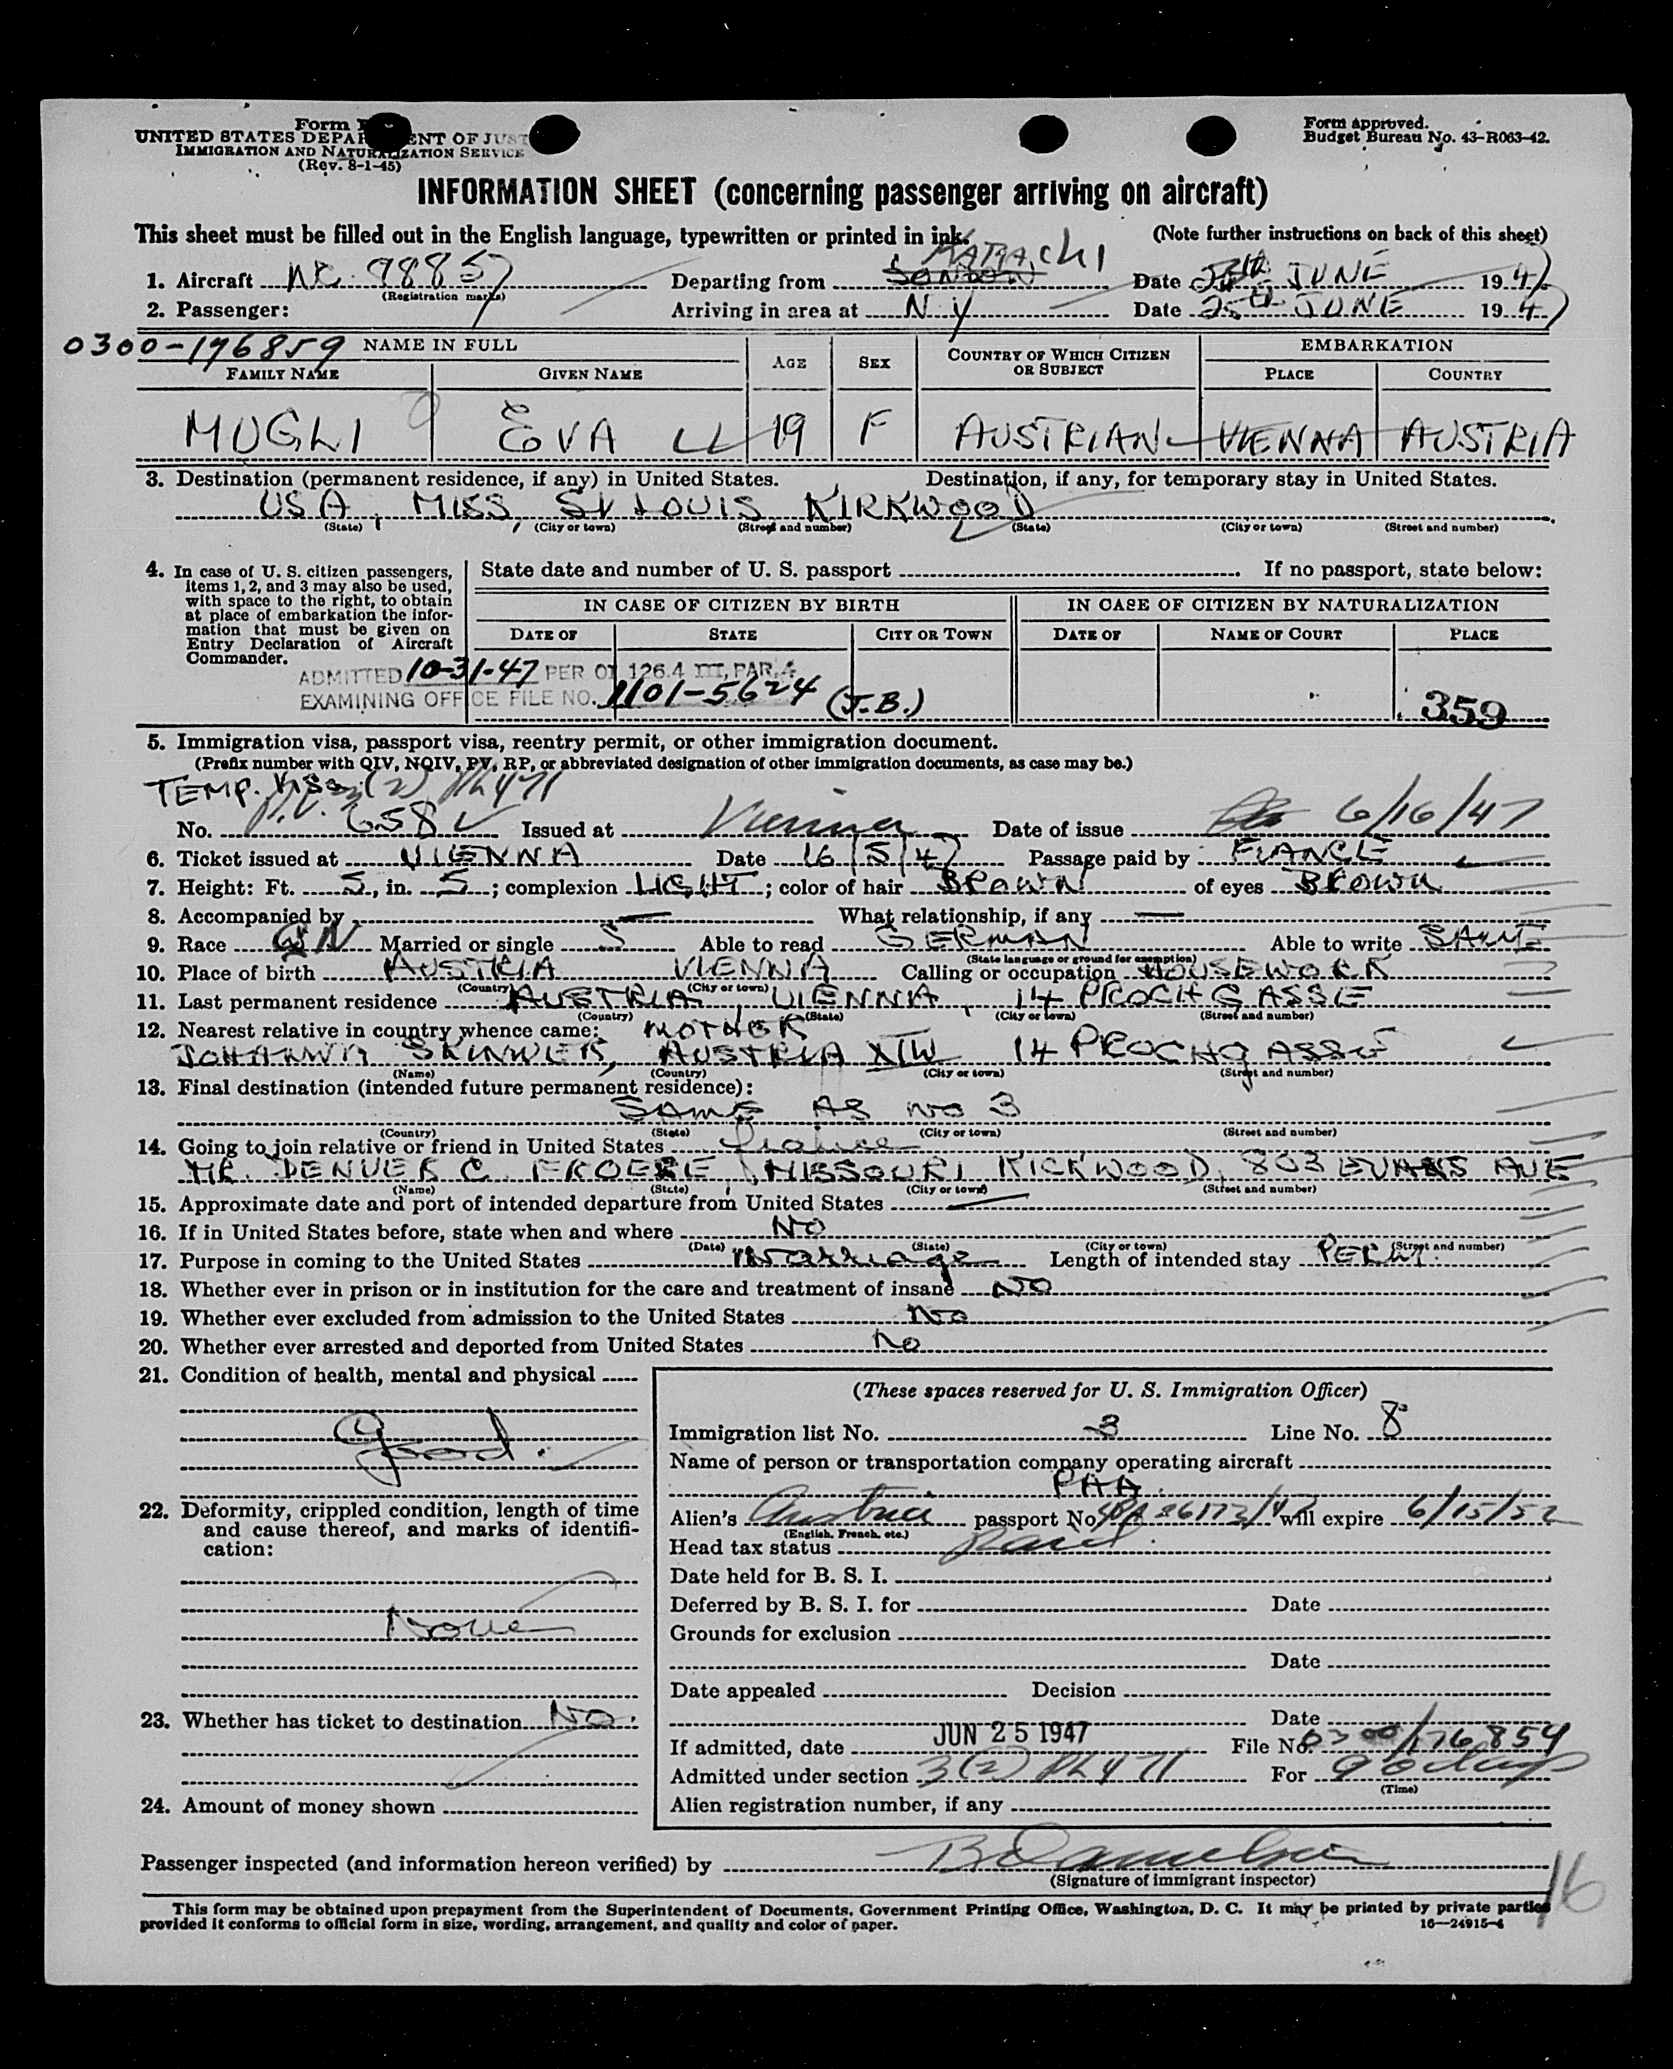 Form
UNITED STATES DEPARTMENT OF JUST
IMMIGRATION AND NATURALIZATION SERVICE
(Rev. 8-1-45)
Form approved.
Budget Bureau No. 43-R063-42.
INFORMATION SHEET (concerning passenger arriving on aircraft)
This sheet must be filled out in the English language, typewritten or printed in ink.
(Note further instructions on back of this sheet)
1. Aircraft NC. 98857 (Registration marks) Departing from LONDON KARACHI Date JUNE 1947
2. Passenger: Arriving in area at N Y Date 25th JUNE 1947
0300-176859 NAME IN FULL AGE SEX COUNTRY OF WHICH CITIZEN OR SUBJECT EMBARKATION
FAMILY NAME GIVEN NAME PLACE COUNTRY
MUGLI EVA 19 F AUSTRIAN VIENNA AUSTRIA
3. Destination (permanent residence, if any) in United States. Destination, if any, for temporary stay in United States.
USA, MISS, St LOUIS KIRKWOOD
(State) (City or town) (Street and number) (State) (City or town) (Street and number)
4. In case of U. S. citizen passengers, items 1, 2, and 3 may also be used, with space to the right, to obtain at place of embarkation the information that must be given on Entry Declaration of Aircraft Commander.
State date and number of U. S. passport If no passport, state below:
IN CASE OF CITIZEN BY BIRTH IN CASE OF CITIZEN BY NATURALIZATION
DATE OF STATE CITY OR TOWN DATE OF NAME OF COURT PLACE
ADMITTED 10-31-47 PER OI 126.4 III, PAR. 4
EXAMINING OFFICE FILE NO. 1101-5624 (J.B.)
359
5. Immigration visa, passport visa, reentry permit, or other immigration document.
(Prefix number with QIV, NQIV, PV, RP, or abbreviated designation of other immigration documents, as case may be.)
TEMP. Visa 3(2) PL 471
No. P.V. 658 Issued at Vienna Date of issue 6/16/47
6. Ticket issued at VIENNA Date 16/5/47 Passage paid by FIANCE
7. Height: Ft. 5, in. 5; complexion LIGHT; color of hair BROWN of eyes BROWN
8. Accompanied by — What relationship, if any —
9. Race Married or single S Able to read GERMAN Able to write SAME
(State language or ground for exemption)
10. Place of birth AUSTRIA VIENNA Calling or occupation HOUSEWORK
(Country) (City or town)
11. Last permanent residence AUSTRIA, VIENNA, 14 PROCHGASSE
(Country) (State) (City or town) (Street and number)
12. Nearest relative in country whence came: MOTHER
JOHANNA AUSTRIA 14 PROCHGASSE
(Name) (Country) (City or town) (Street and number)
13. Final destination (intended future permanent residence):
SAME AS NO 3
(Country) (State) (City or town) (Street and number)
14. Going to join relative or friend in United States fiance
MR. DENVER C. FROESE, MISSOURI KIRKWOOD, 803 EVANS AVE
(Name) (State) (City or town) (Street and number)
15. Approximate date and port of intended departure from United States —
16. If in United States before, state when and where NO
(Date) (State) (City or town) (Street and number)
17. Purpose in coming to the United States Marriage Length of intended stay PERM.
18. Whether ever in prison or in institution for the care and treatment of insane NO
19. Whether ever excluded from admission to the United States No
20. Whether ever arrested and deported from United States No
21. Condition of health, mental and physical
Good.
22. Deformity, crippled condition, length of time and cause thereof, and marks of identification:
None
23. Whether has ticket to destination NO.
24. Amount of money shown
(These spaces reserved for U. S. Immigration Officer)
Immigration list No. 3 Line No. 8
Name of person or transportation company operating aircraft
PAA
Alien's Austria passport No. 86173/47 will expire 6/15/52
(English, French, etc.)
Head tax status Paid
Date held for B. S. I.
Deferred by B. S. I. for Date
Grounds for exclusion
Date
Date appealed Decision
Date
If admitted, date JUN 25 1947 File No. 0300/176859
Admitted under section 3(2) PL 471 For 90 days
(Time)
Alien registration number, if any
Passenger inspected (and information hereon verified) by
(Signature of immigrant inspector)
16
This form may be obtained upon prepayment from the Superintendent of Documents, Government Printing Office, Washington, D. C. It may be printed by private parties
provided it conforms to official form in size, wording, arrangement, and quality and color of paper. 16—24915-4